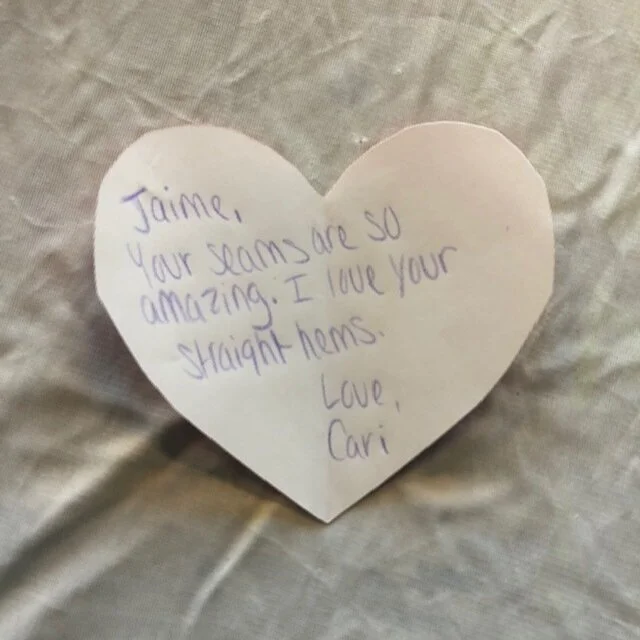 Jaime,
Your seams are so
amazing. I love your
straight hems.
Love,
Cari